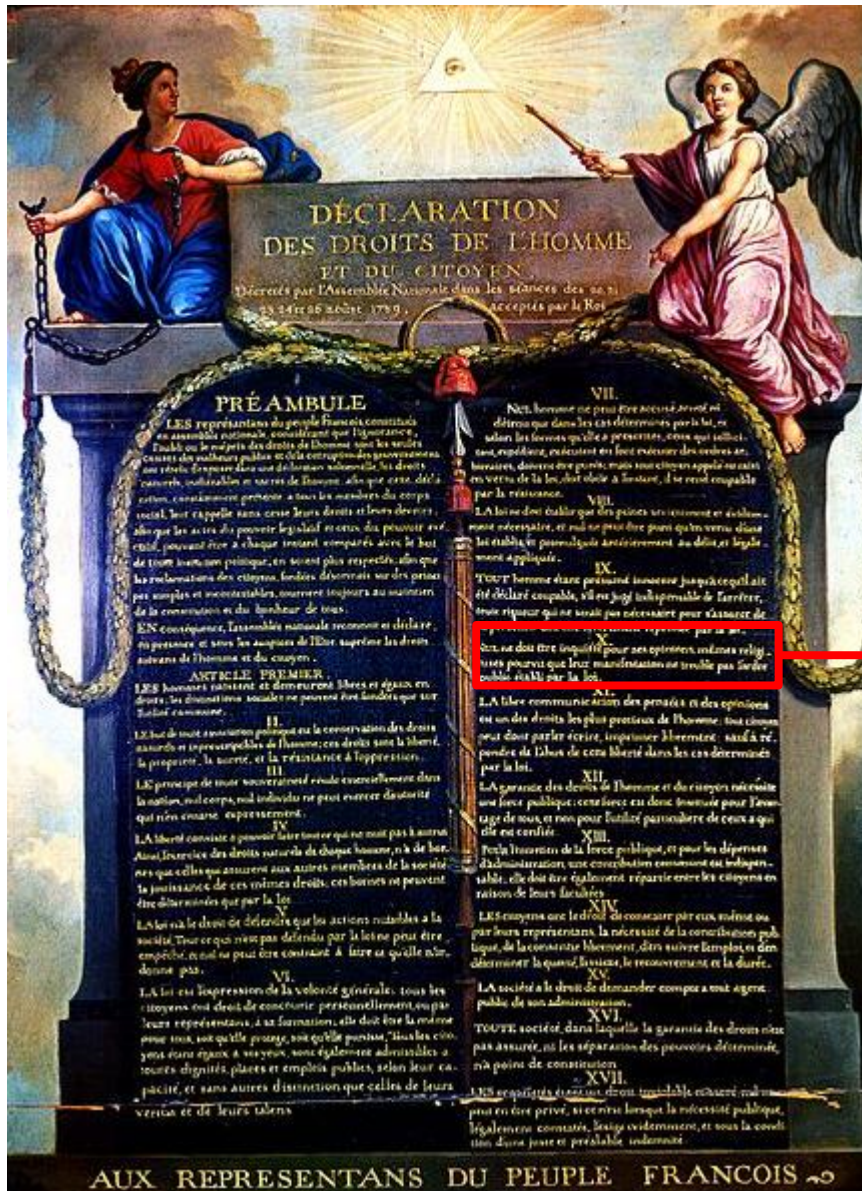 DÉCLARATION
DES DROITS DE L'HOMME
ET DU CITOYEN,
Décretés par l'Assemblée Nationale dans les séances des 20. 21
23 24 et 26 août 1789, acceptés par le Roi
PRÉAMBULE
LES représentans du peuple François, constitués
en assemblée nationale, considérant que l'ignorance
l'oubli ou le mépris des droits de l'homme sont les seules
causes des malheurs publics et de la corruption des gouvernemens
ont résolu d'exposer dans une déclaration solemnelle, les droits
naturels, inaliénables et sacrés de l'homme; afin que cette décla
ration, constamment présente a tous les membres du corps
social, leur rappelle sans cesse leurs droits et leurs devoirs;
afin que les actes du pouvoir législatif et ceux du pouvoir exé
cutif, pouvant être à chaque instant comparés avec le but
de toute institution politique, en soient plus respectés; afin que
les reclamations des citoyens, fondées désormais sur des princi
pes simples et incontestables, tournent toujours au maintien
de la constitution et du bonheur de tous.
EN conséquence, l'assemblée nationale reconnoit et déclare,
en présence et sous les auspices de l'Etre suprême les droits
suivans de l'homme et du citoyen.
ARTICLE PREMIER.
LES hommes naissent et demeurent libres et égaux en
droits; les distinctions sociales ne peuvent être fondées que sur
l'utilité commune.
II.
LE but de toute association politique est la conservation des droits
naturels et imprescriptibles de l'homme; ces droits sont la liberté,
la propriété, la sureté, et la résistance à l'oppression.
III.
LE principe de toute souveraineté réside essentiellement dans
la nation, nul corps, nul individu ne peut exercer d'autorité
qui n'en emane expressement.
IV.
LA liberté consiste a pouvoir faire tout ce qui ne nuit pas à autrui
Ainsi, l'exercice des droits naturels de chaque homme, n'a de bor
nes que celles qui assurent aux autres membres de la société
la jouissance de ces mêmes droits; ces bornes ne peuvent
être déterminées que par la loi
V.
LA loi n'a le droit de défendre que les actions nuisibles a la
société. Tout ce qui n'est pas défendu par la loi ne peut être
empêché, et nul ne peut être contraint à faire ce qu'elle n'or
donne pas.
VI.
LA loi est l'expression de la volonté générale; tous les
citoyens ont droit de concourir personnellement, ou par
leurs représentans, à sa formation; elle doit être la même
pour tous, soit qu'elle protege, soit qu'elle punisse, Tous les cito
yens étans égaux à ses yeux, sont également admissibles a
toutes dignités, places et emplois publics, selon leur ca
pacité, et sans autres distinction que celles de leurs
vertus et de leurs talens
VII.
NUL homme ne peut être accusé, arreté ni
détenu que dans les cas déterminés par la loi, et
selon les formes qu'elle a prescrites, ceux qui sollici
tent, expédient, exécutent ou font exécuter des ordres ar
bitraires, doivent être punis; mais tout citoyen appelé ou saisi
en vertu de la loi, doit obéir à l'instant, il se rend coupable
par la résistance.
VIII.
LA loi ne doit établir que des peines strictement et évidem
ment nécessaire, et nul ne peut être puni qu'en vertu d'une
loi établie, et promulguée antérieurement au délit, et légale
ment appliquée.
IX.
TOUT homme étant présumé innocent jusqu'à ce qu'il ait
été déclaré coupable, s'il est jugé indispensable de l'arrêter,
toute rigueur qui ne serait pas nécessaire pour s'assurer de
par la loi.
X.
NUL ne doit être inquiété pour ses opinions, mêmes religi
euses pourvu que leur manifestation ne trouble pas l'ordre
public établi par la loi.
XI.
LA libre communication des pensées et des opinions
est un des droits les plus precieux de l'homme; tout citoyen
peut donc parler écrire, imprimer librement; sauf à ré
pondre de l'abus de cette liberté dans les cas déterminés
par la loi.
XII.
LA garantie des droits de l'homme et du citoyen nécessite
une force publique; cette force est donc instituée pour l'avan
tage de tous, et non pour l'utilité particuliere de ceux a qui
elle est confiée.
XIII.
POUR l'entretien de la force publique, et pour les dépenses
d'administration, une contribution commune est indispen
sable; elle doit être également répartie entre les citoyens en
raison de leurs facultées
XIV
LES citoyens ont le droit de constater par eux même ou
par leurs représentans, la nécessité de la contribution pub
lique, de la consentir librement, d'en suivre l'emploi, et d'en
déterminer la quotité, l'assiete, le recouvrement et la durée.
XV.
LA société a le droit de demander compte a tout agent
public de son administration.
XVI.
TOUTE société, dans laquelle la garantie des droits n'est
pas assurée, ni les séparation des pouvoirs déterminée,
n'a point de constitution
XVII.
LES propriétés étant un droit inviolable et sacré, nul ne
peut en être privé, si ce n'est lorsque la nécessité publique,
légalement constatée, l'exige evidemment, et sous la condi
tion d'une juste et préalable indemnité
AUX REPRESENTANS DU PEUPLE FRANCOIS